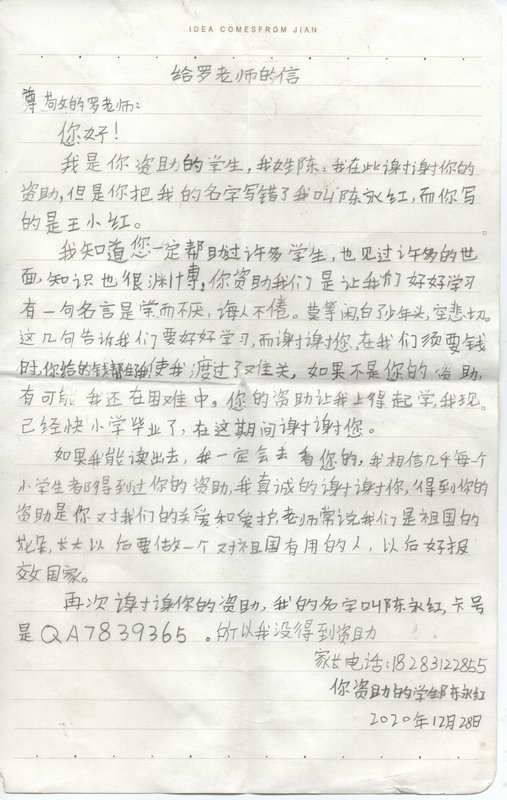 IDEA COMESFROM JIAN
给罗老师的信
尊敬的罗老师:
您好!
我是你资助的学生,我姓陈,我在此谢谢你的
资助,但是你把我的名字写错了我叫陈永红,而你写
的是王小红。
我知道您一定帮助过许多学生,也见过许多的世
面,知识也很渊博,你资助我们是让我们好好学习
有一句名言是学而不厌,诲人不倦。莫等闲,白了少年头,空悲切。
这几句告诉我们要好好学习,而谢谢您,在我们须要钱
时,你给的钱帮 使我渡过了难关,如果不是您的资助,
有可能我还在困难中。您的资助让我上得起学,我现
已经快小学毕业了,在这期间谢谢您。
如果我能读出去,我一定会去看您的,我相信几乎每个
小学生都得到过你的资助,我真诚的谢谢你,得到你的
资助是你对我们的关爱和爱护,老师常说我们是祖国的
花朵,长大以后要做一个对祖国有用的人,以后好报
效国家。
再次谢谢你的资助,我的名字叫陈永红,卡号
是QA7839365。所以我没得到资助
家长电话:18283122855
你资助的学生陈永红
2020年12月28日